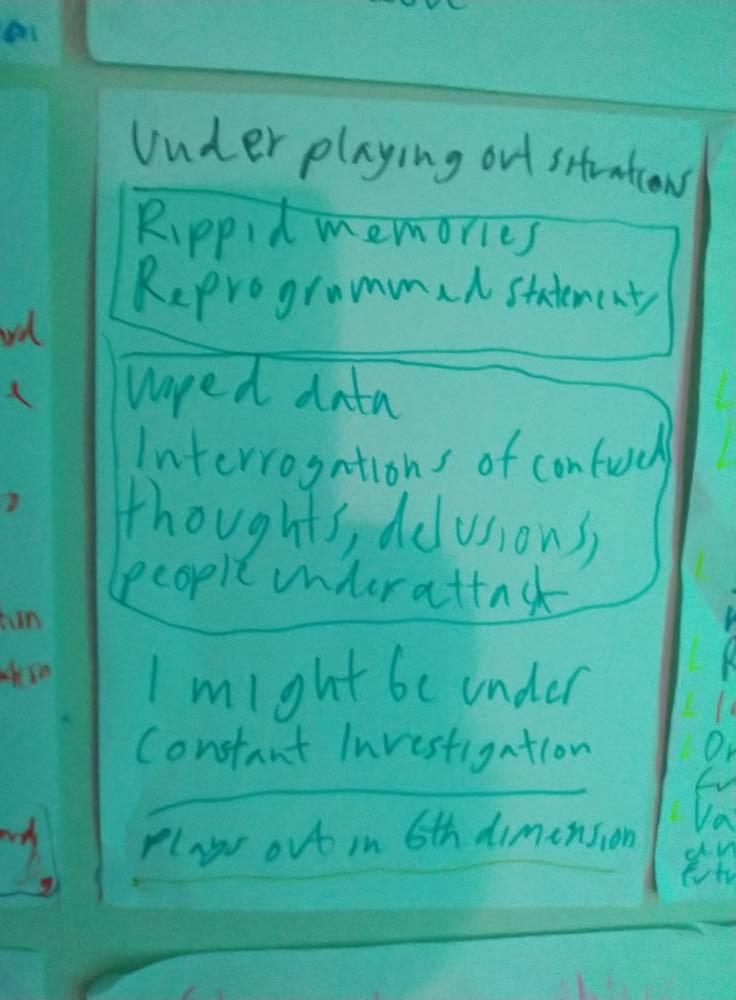 Under playing out situations
Rippid memories
Reprogrammed statements
Woped data
Interrogations of confused
thoughts, delusions,
people under attack
I might be under
Constant Investigation
Plays out in 6th dimension